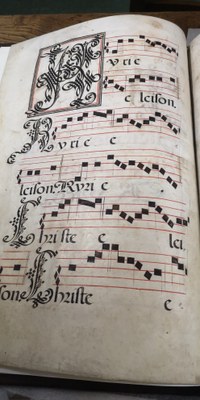 Kyrie
e leison.
Kyrie e
leison. Kyrie e
Christe e lei
son Christe e